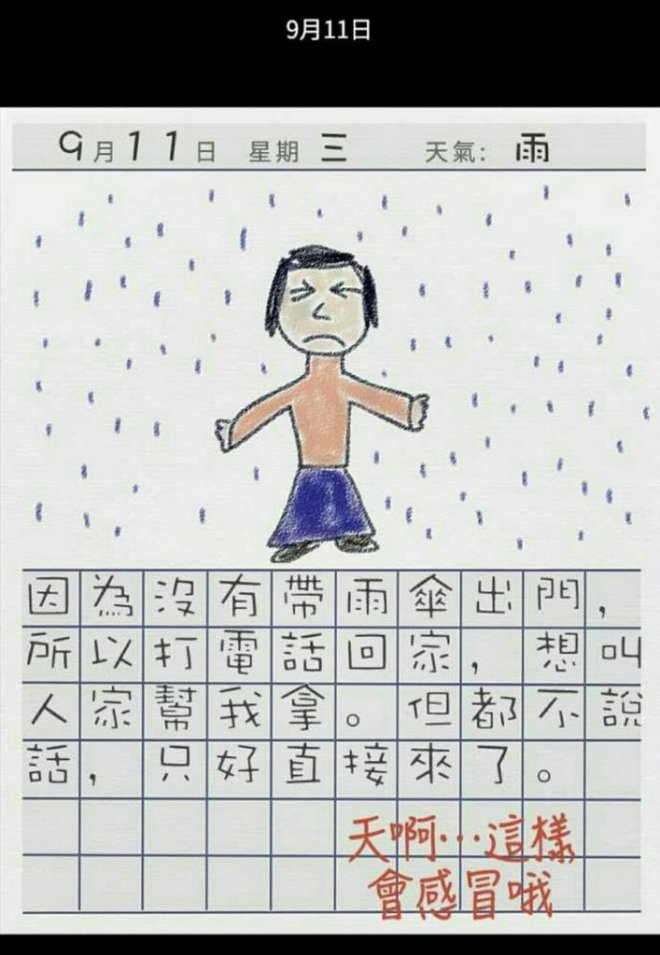 9月11日
9月11日 星期三 天氣: 雨
因為沒有帶雨傘出門,
所以打電話回家, 想叫
人家幫我拿。但都不說
話, 只好直接來了。
天啊…這樣
會感冒哦